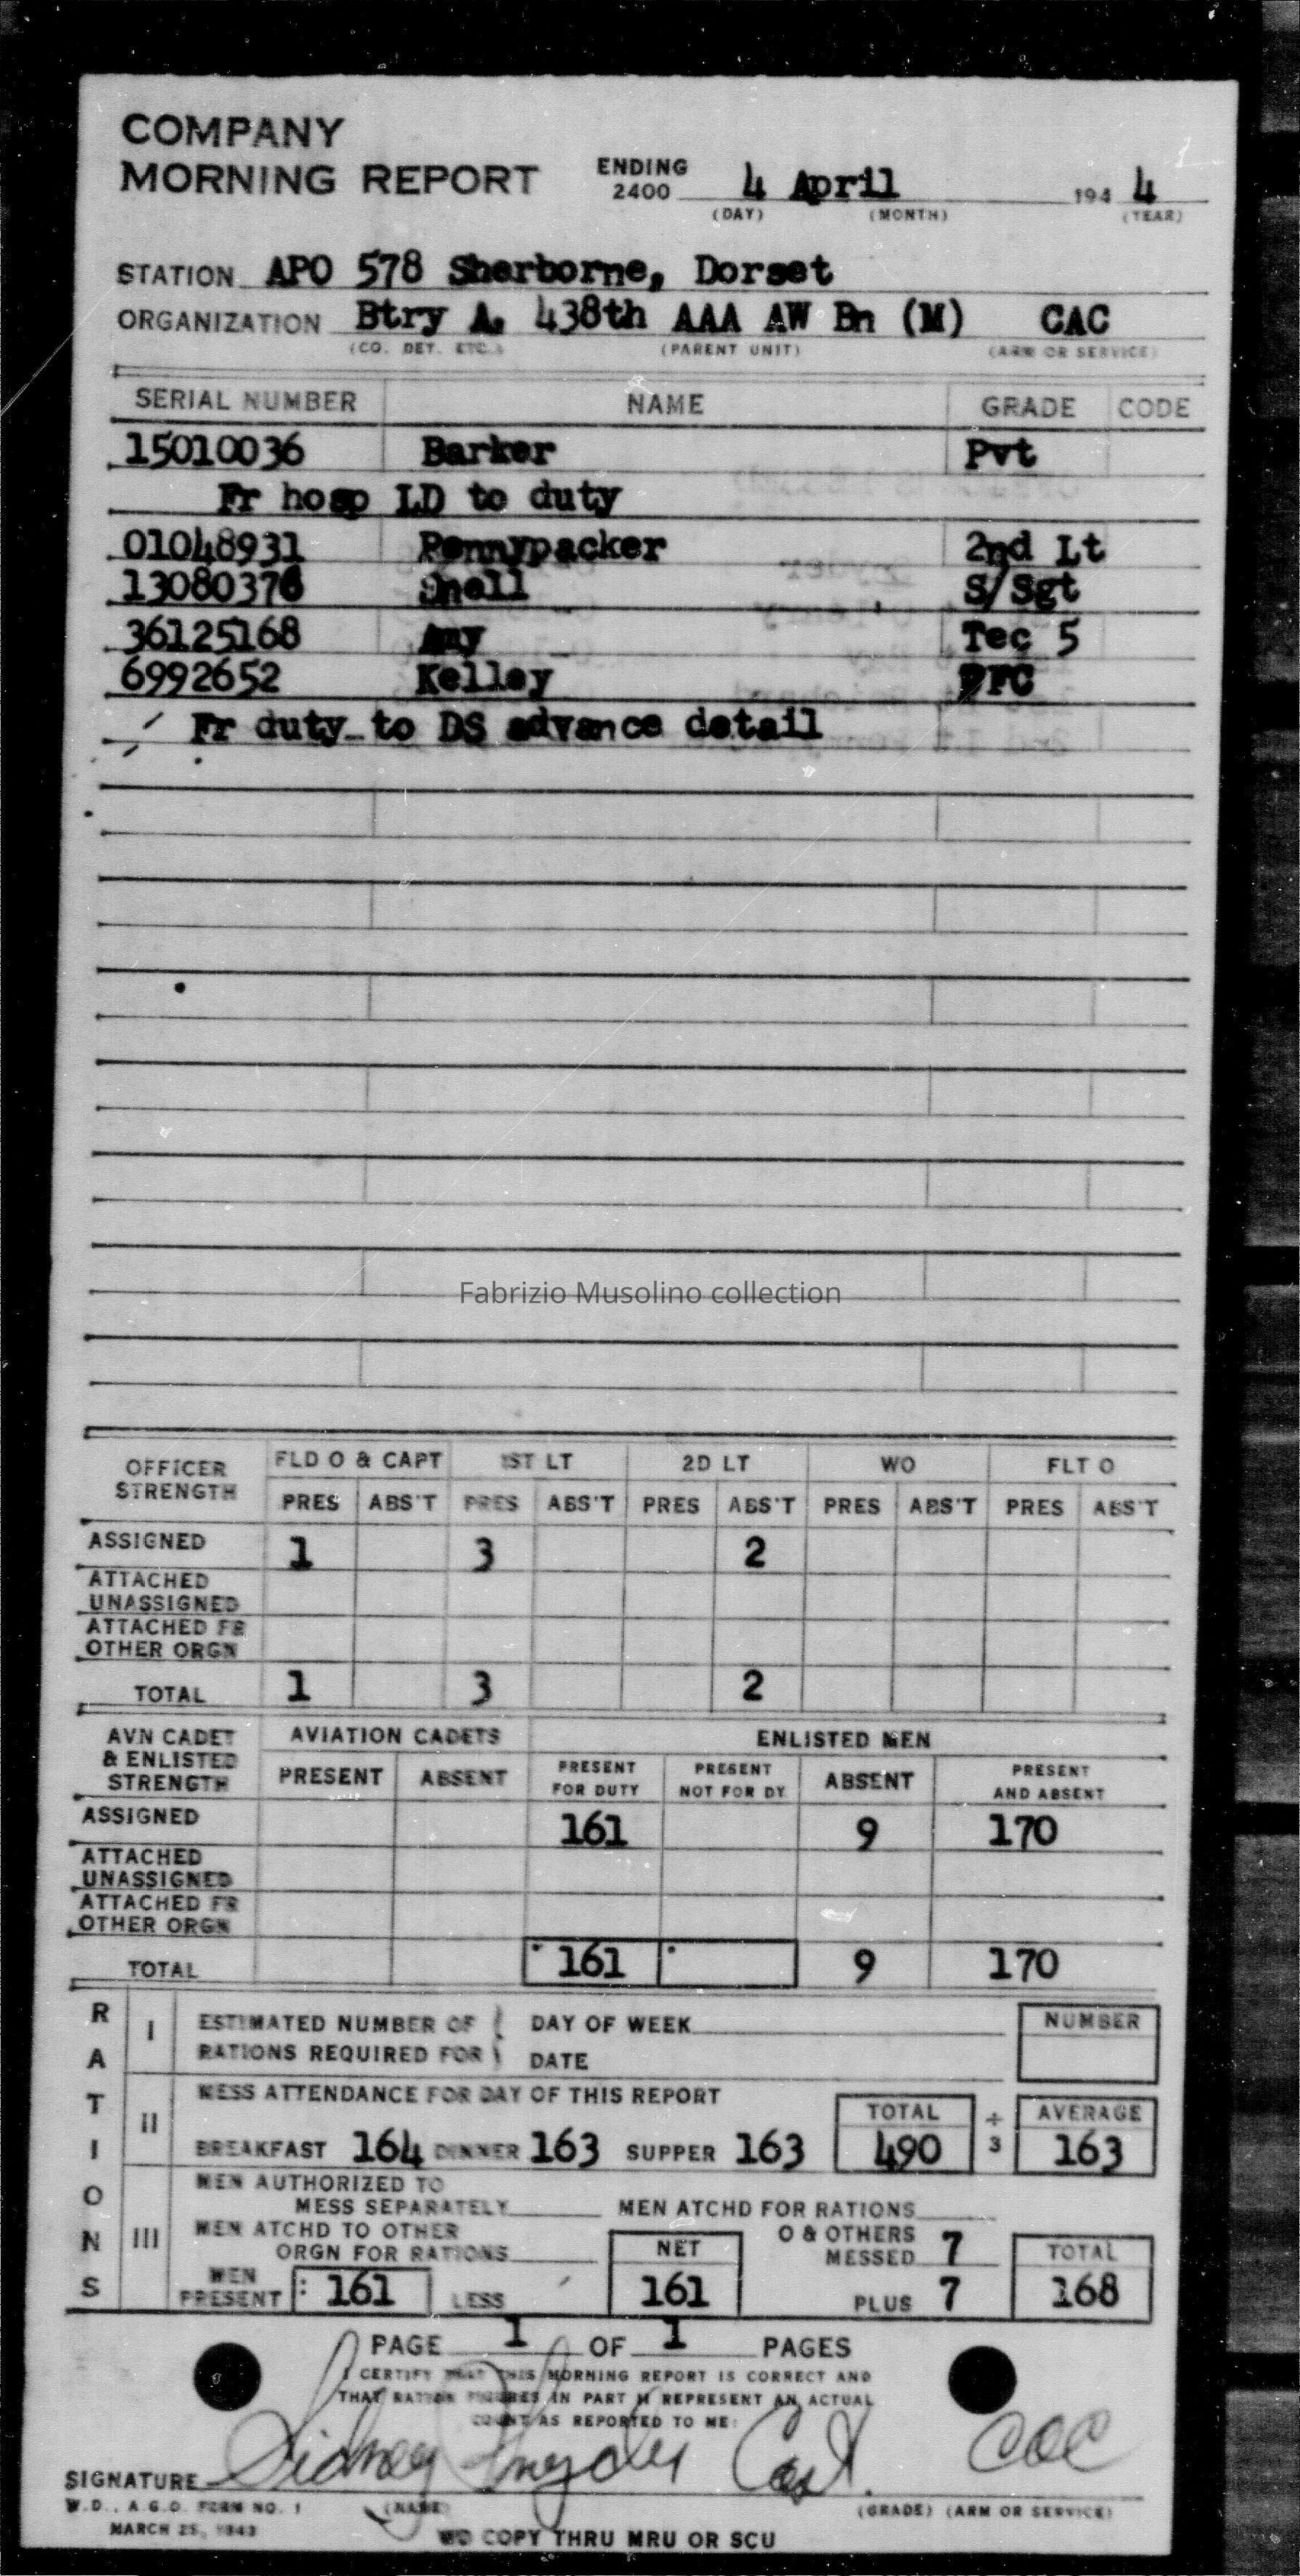 COMPANY
MORNING REPORT ENDING 2400 4 April 194 4
(DAY) (MONTH) (YEAR)
STATION APO 578 Sherborne, Dorset
ORGANIZATION Btry A, 438th AAA AW Bn (M) CAC
(CO. DET. ETC.) (PARENT UNIT) (ARM OR SERVICE)
SERIAL NUMBER NAME GRADE CODE
15010036 Barker Pvt
Fr hosp LD to duty
01048931 Pennypacker 2nd Lt
13080376 Snell S/Sgt
36125168 Tec 5
6992652 Kelley PFC
Fr duty to DS advance detail
Fabrizio Musolino collection
OFFICER STRENGTH FLD O & CAPT 1ST LT 2D LT WO FLT O
PRES ABS'T PRES ABS'T PRES ABS'T PRES ABS'T PRES ABS'T
ASSIGNED 1 3 2
ATTACHED
UNASSIGNED
ATTACHED FR
OTHER ORGN
TOTAL 1 3 2
AVN CADET & ENLISTED STRENGTH AVIATION CADETS ENLISTED MEN
PRESENT ABSENT PRESENT FOR DUTY PRESENT NOT FOR DY ABSENT PRESENT AND ABSENT
ASSIGNED 161 9 170
ATTACHED
UNASSIGNED
ATTACHED FR
OTHER ORGN
TOTAL 161 9 170
RATIONS
I ESTIMATED NUMBER OF DAY OF WEEK NUMBER
RATIONS REQUIRED FOR DATE
II MESS ATTENDANCE FOR DAY OF THIS REPORT TOTAL ÷ AVERAGE
BREAKFAST 164 DINNER 163 SUPPER 163 490 3 163
MEN AUTHORIZED TO
MESS SEPARATELY MEN ATCHD FOR RATIONS
III MEN ATCHD TO OTHER NET O & OTHERS
ORGN FOR RATIONS MESSED 7 TOTAL
MEN PRESENT 161 LESS 161 PLUS 7 168
PAGE 1 OF 1 PAGES
I CERTIFY THAT THIS MORNING REPORT IS CORRECT AND
THAT RATION FIGURES IN PART II REPRESENT AN ACTUAL
COUNT AS REPORTED TO ME:
SIGNATURE Sidney Snyder Capt. CAC
W.D., A.G.O. FORM NO. 1 (NAME) (GRADE) (ARM OR SERVICE)
MARCH 25, 1943
WD COPY THRU MRU OR SCU